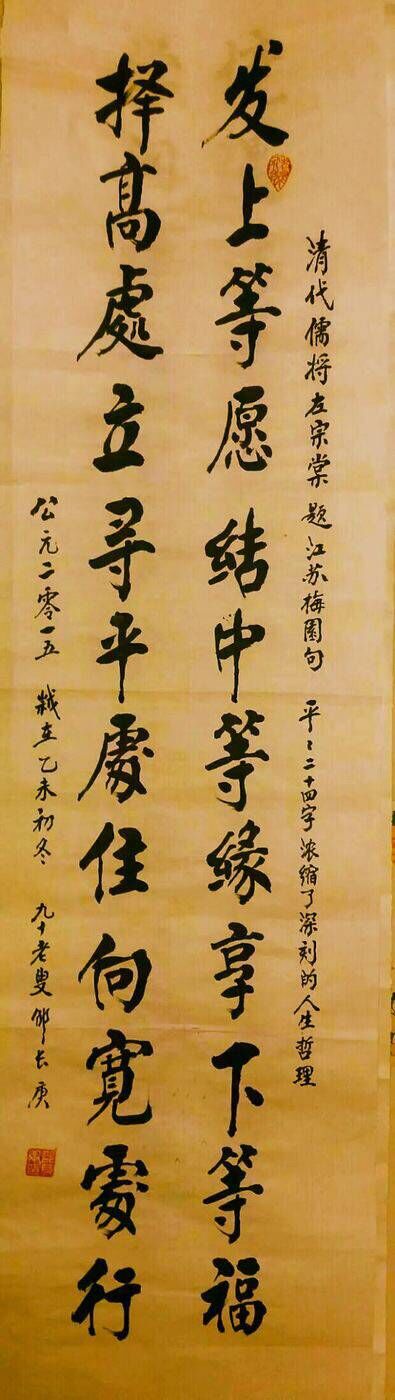 清代儒将左宗棠题江苏梅园句 平々二十四字浓缩了深刻的人生哲理
发上等愿结中等缘享下等福
择高處立寻平處住向寬處行
公元二零一五 歲在乙未初冬 九十老叟长庚